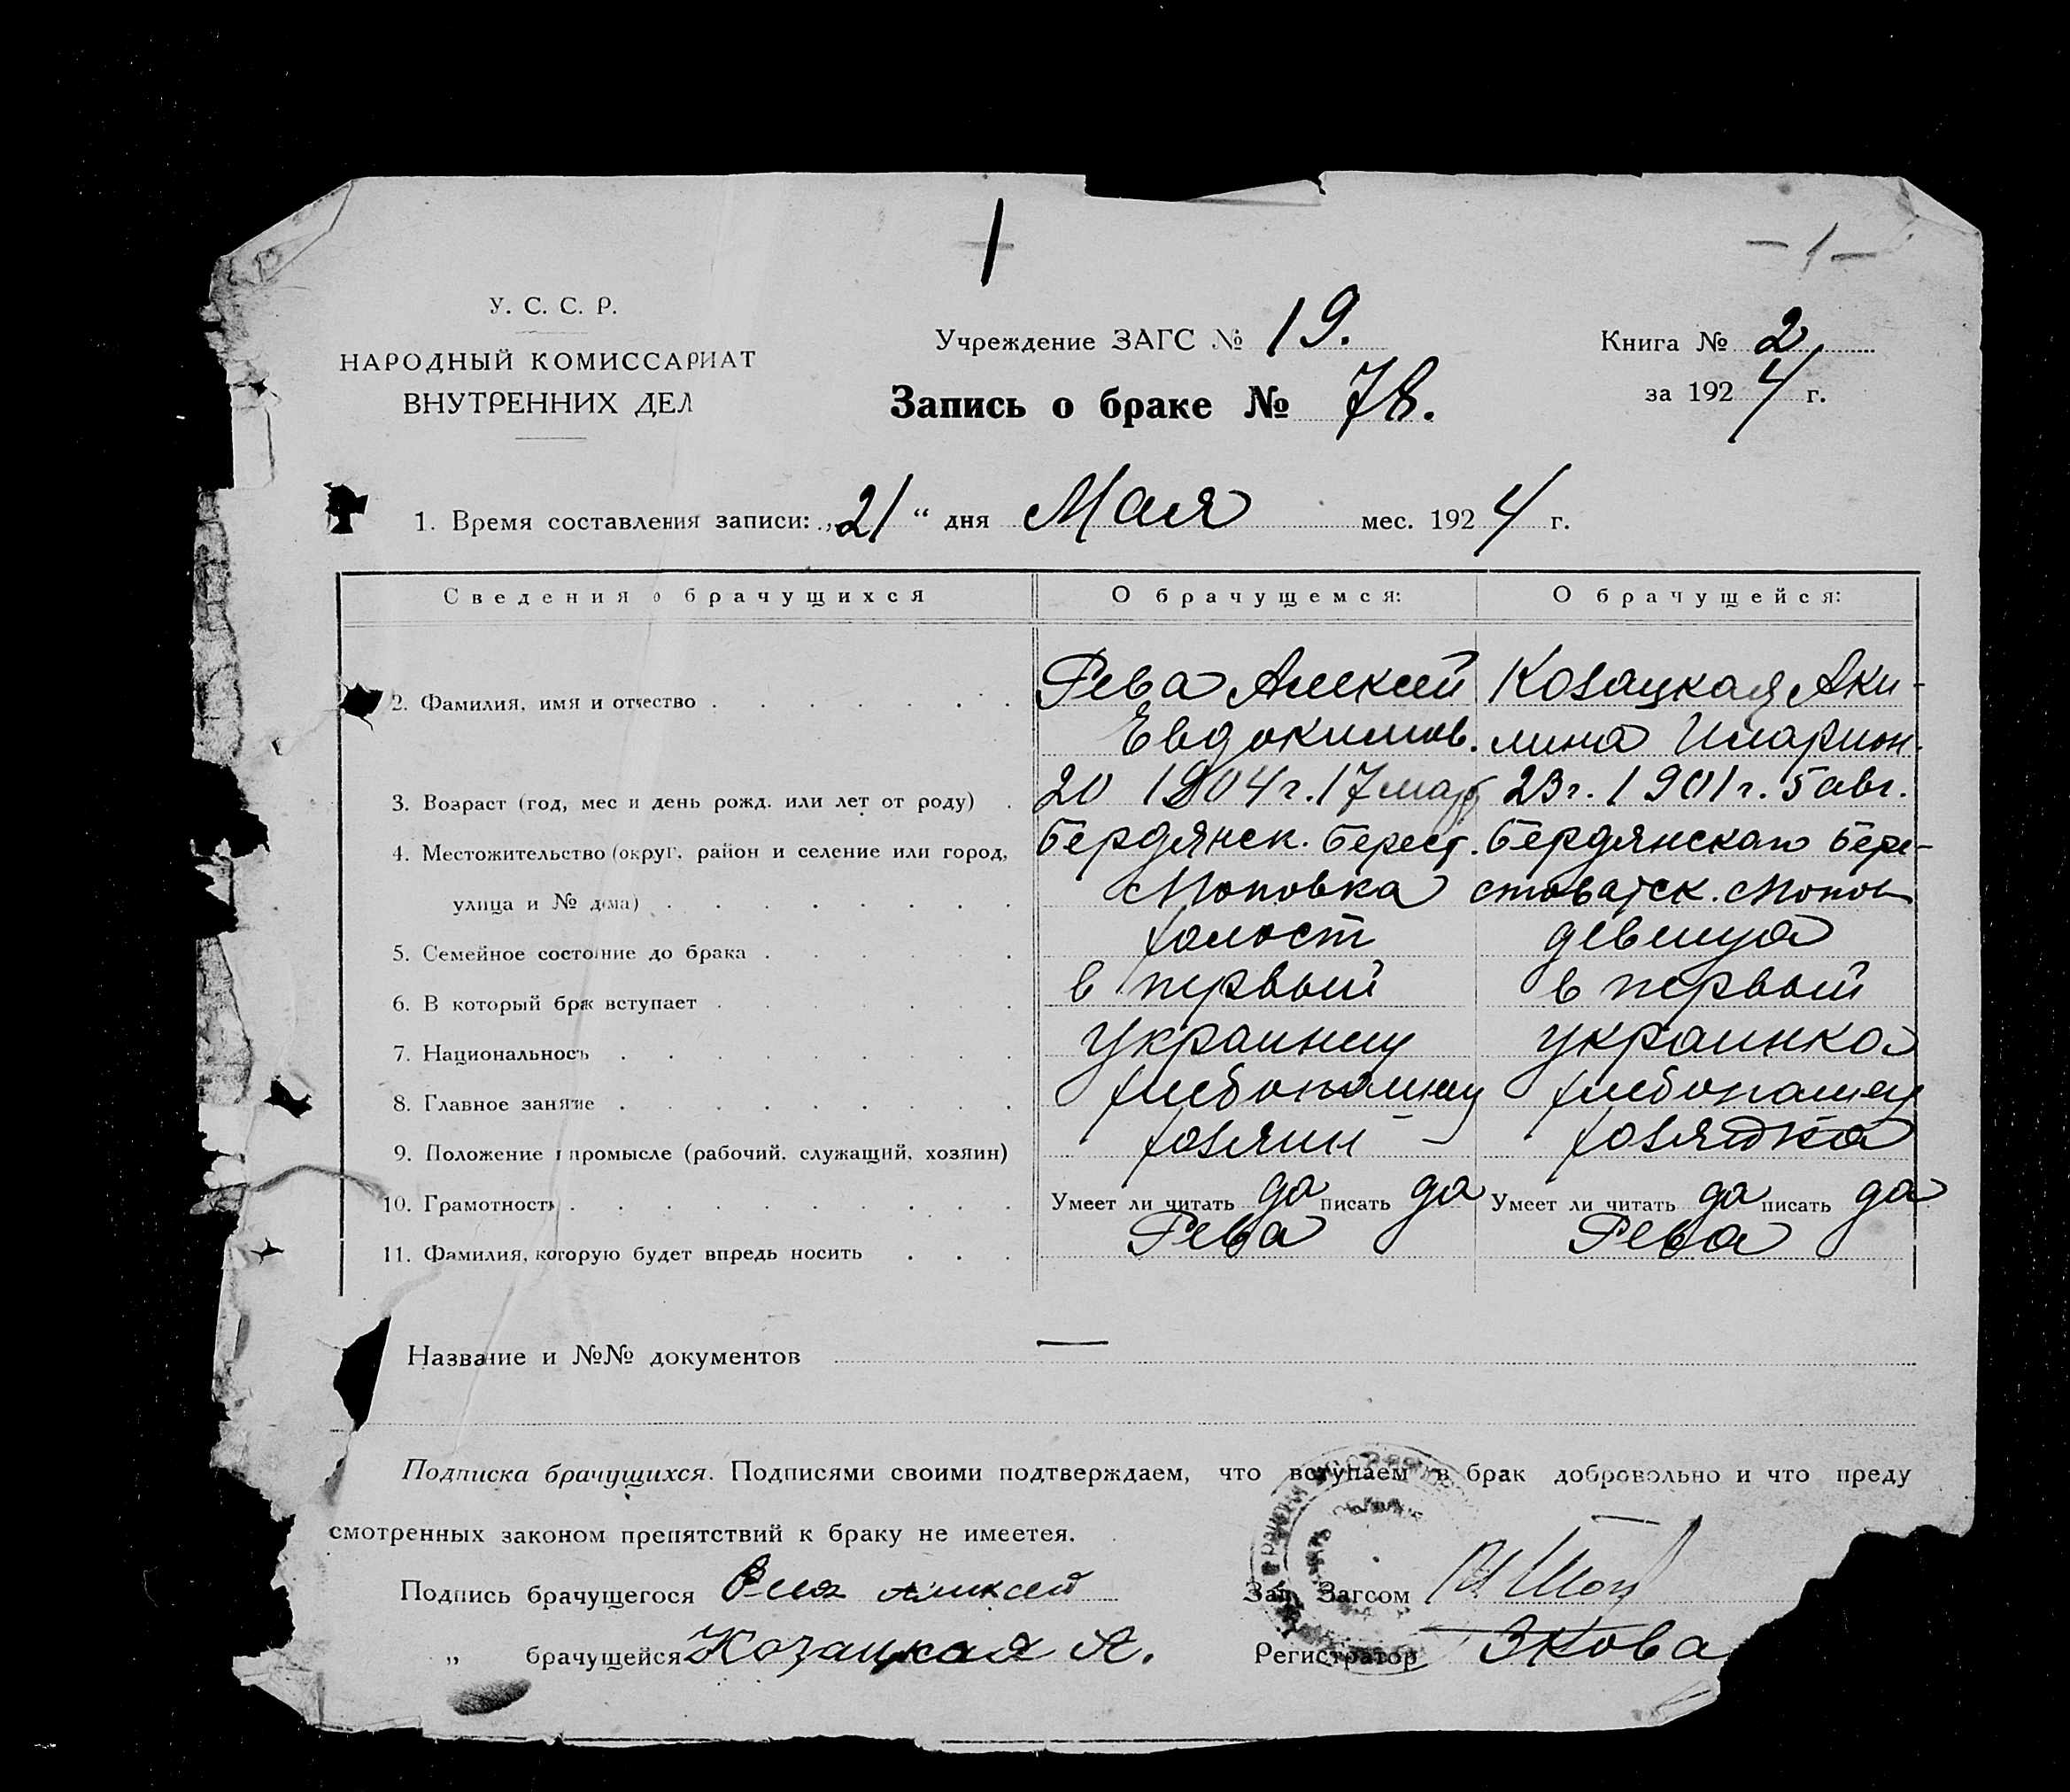 - 1 -
У. С. С. Р.
НАРОДНЫЙ КОМИССАРИАТ
ВНУТРЕННИХ ДЕЛ
Учреждение ЗАГС № 19.
Запись о браке № 78.
Книга № 2
за 1924 г.
1. Время составления записи: „21“ дня Мая мес. 1924 г.
Сведения о брачущихся О брачущемся: О брачущейся:
2. Фамилия, имя и отчество Рева Алексей Козацкая Аки-
Евдокимов. лина Иларион.
3. Возраст (год, мес и день рожд. или лет от роду) 20 1904 г. 17 мар 23 г. 1901 г. 5 авг.
4. Местожительство (округ, район и селение или город, Бердянск. Берест. Бердянского Бере-
улица и № дома) Поповка стоватск. Попов
5. Семейное состояние до брака холост девица
6. В который брак вступает в первый в первый
7. Национальность украинец украинка
8. Главное занятие хлебопашец хлебопашец
9. Положение в промысле (рабочий, служащий, хозяин) хозяин хозяйка
10. Грамотность Умеет ли читать да писать да Умеет ли читать да писать да
11. Фамилия, которую будет впредь носить Рева Рева
Название и №№ документов —
Подписка брачущихся. Подписями своими подтверждаем, что вступаем в брак добровольно и что преду
смотренных законом препятствий к браку не имеетея.
Подпись брачущегося Рева Алексей Зав. Загсом
„ брачущейся Козацкая А. Регистратор